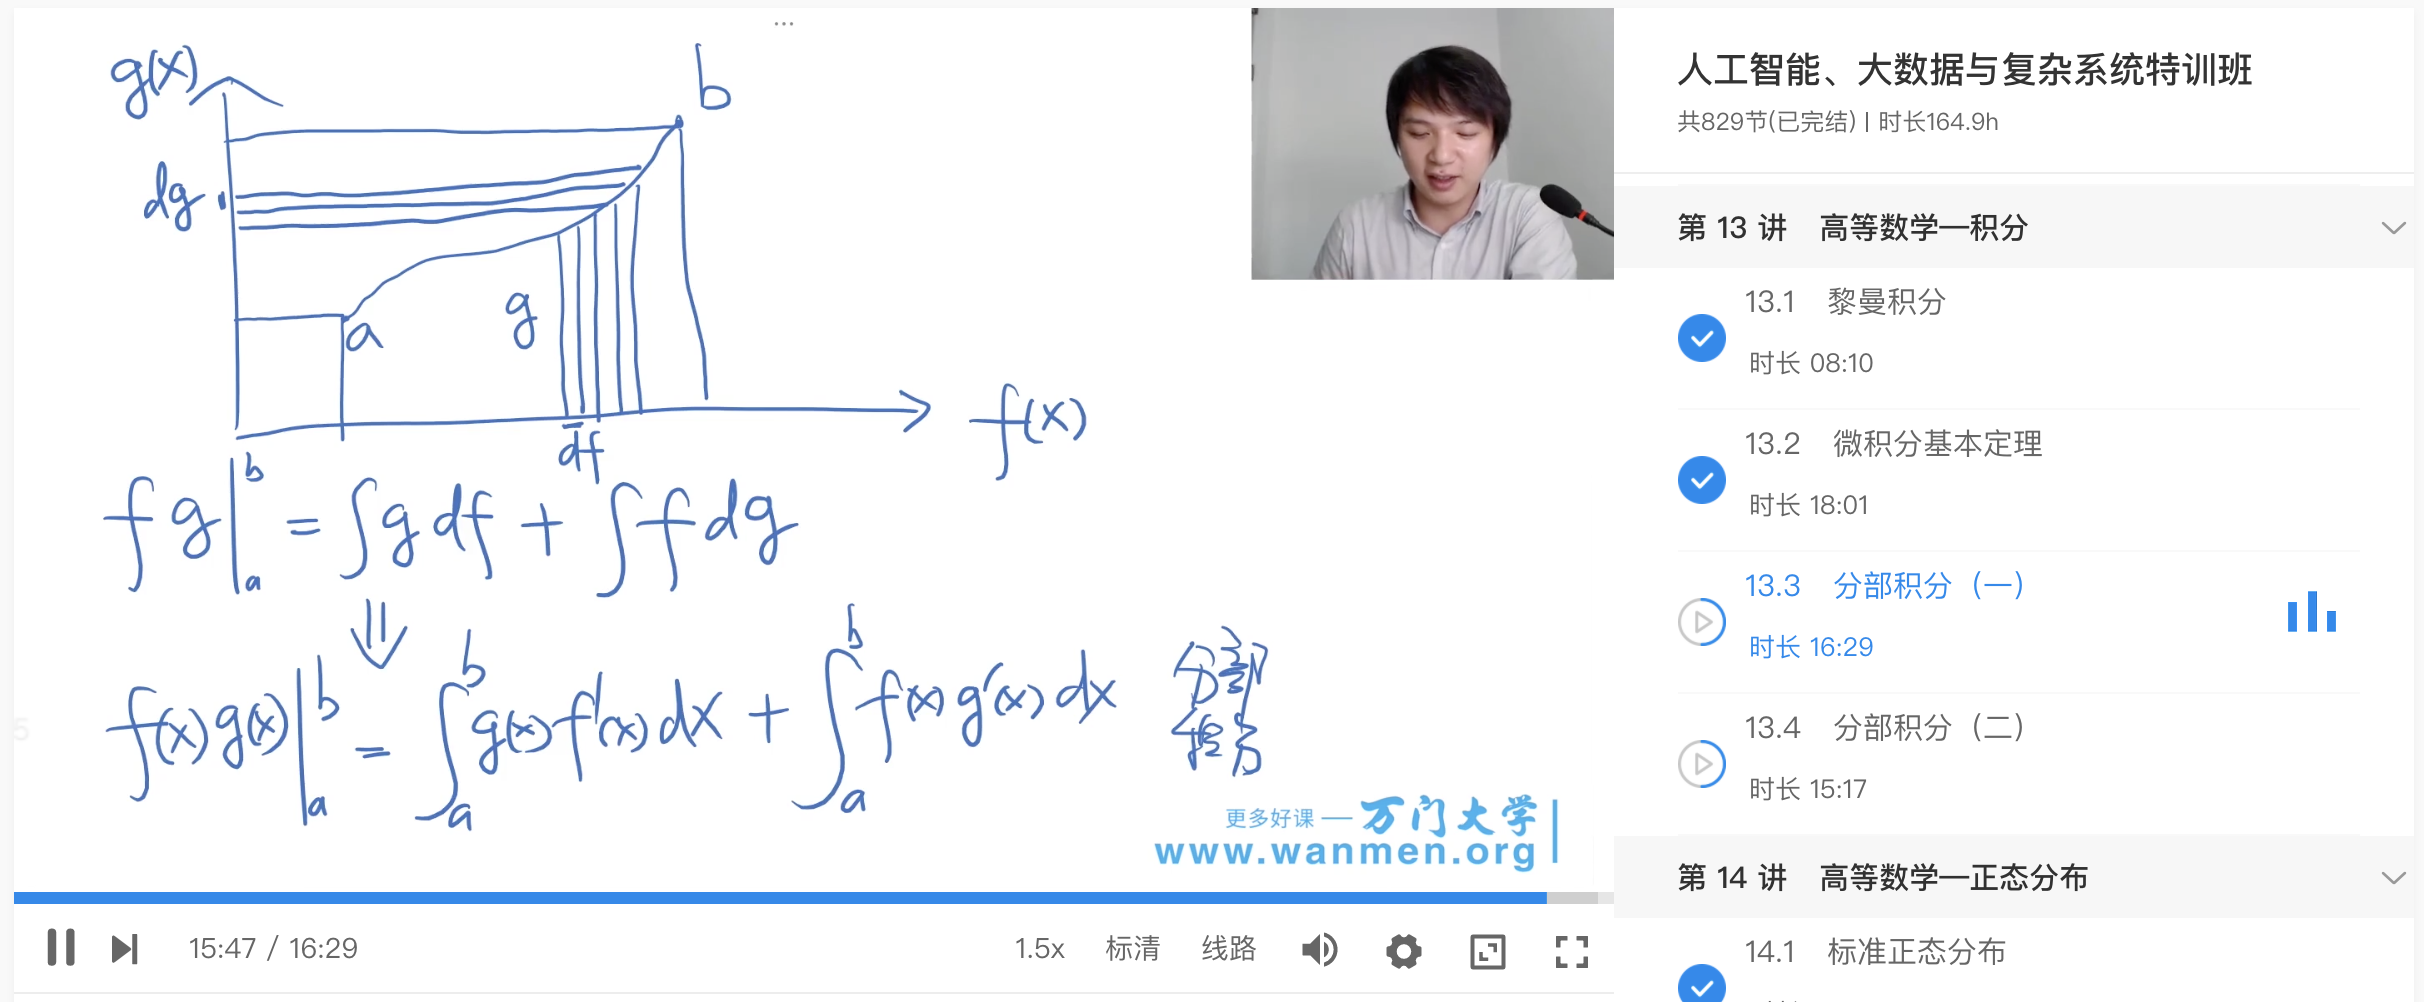 ...
g(x)
b
dg
a
g
f(x)
df
fg|_a^b = ∫g df + ∫f dg
⇓
f(x)g(x)|_a^b = ∫_a^b g(x)f'(x)dx + ∫_a^b f(x)g'(x)dx 分部
积分
更多好课 — 万门大学
www.wanmen.org
15:47 / 16:29
1.5x 标清 线路
人工智能、大数据与复杂系统特训班
共829节(已完结) | 时长164.9h
第 13 讲 高等数学—积分
13.1 黎曼积分
时长 08:10
13.2 微积分基本定理
时长 18:01
13.3 分部积分（一）
时长 16:29
13.4 分部积分（二）
时长 15:17
第 14 讲 高等数学—正态分布
14.1 标准正态分布